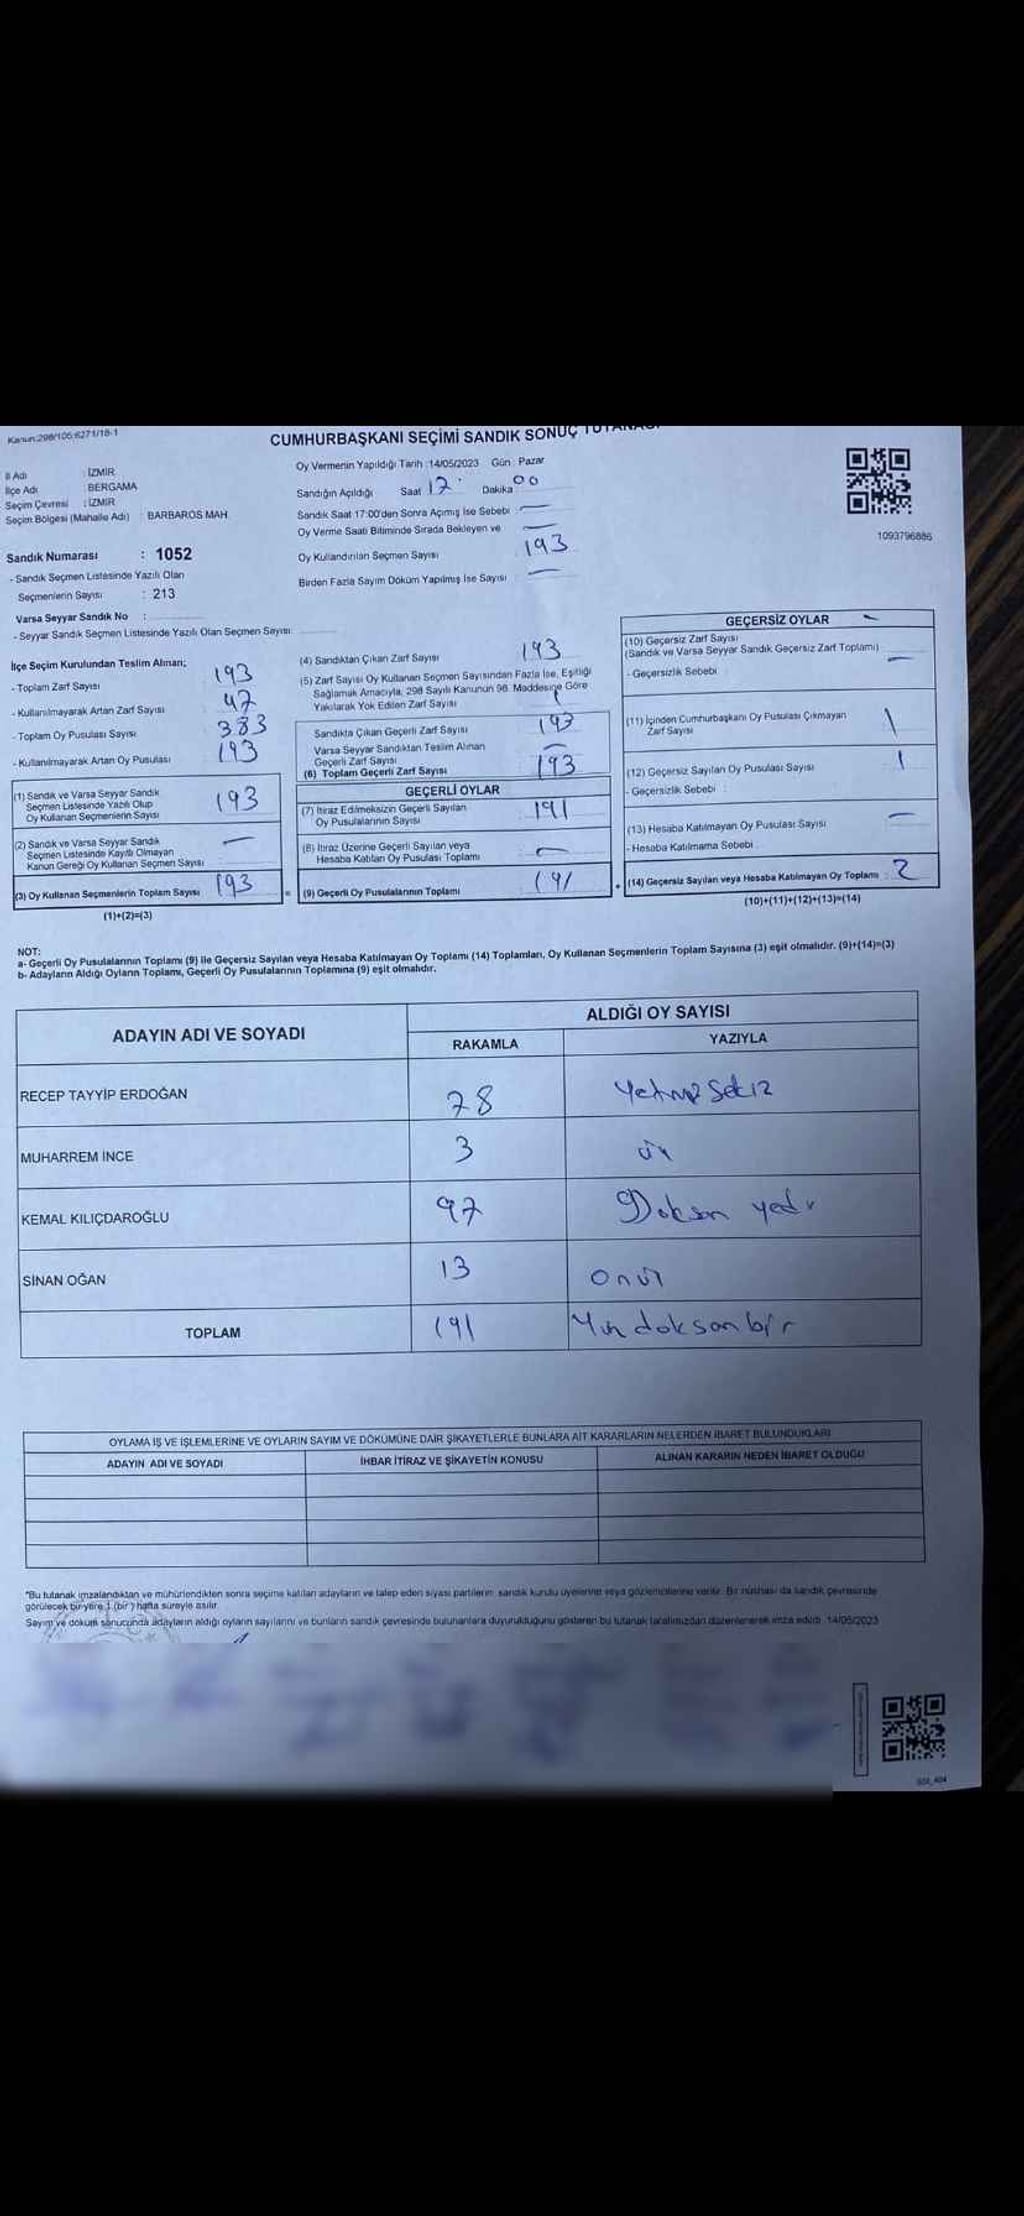 Kanun:298/105;6271/18-1
CUMHURBAŞKANI SEÇİMİ SANDIK SONUÇ TUTANAĞI
İl Adı : İZMİR
İlçe Adı : BERGAMA
Seçim Çevresi : İZMİR
Seçim Bölgesi (Mahalle Adı) : BARBAROS MAH
Sandık Numarası : 1052
- Sandık Seçmen Listesinde Yazılı Olan
Seçmenlerin Sayısı : 213
Varsa Seyyar Sandık No :
- Seyyar Sandık Seçmen Listesinde Yazılı Olan Seçmen Sayısı:
Oy Vermenin Yapıldığı Tarih :14/05/2023 Gün : Pazar
Sandığın Açıldığı Saat 17 Dakika 00
Sandık Saat 17:00'den Sonra Açımış İse Sebebi : —
Oy Verme Saati Bitiminde Sırada Bekleyen ve —
Oy Kullandırılan Seçmen Sayısı : 193
Birden Fazla Sayım Döküm Yapılmış İse Sayısı : —
1093796886
İlçe Seçim Kurulundan Teslim Alınan;
- Toplam Zarf Sayısı 193
- Kullanılmayarak Artan Zarf Sayısı 47
- Toplam Oy Pusulası Sayısı 383
- Kullanılmayarak Artan Oy Pusulası 193
(1) Sandık ve Varsa Seyyar Sandık
Seçmen Listesinde Yazılı Olup
Oy Kullanan Seçmenlerin Sayısı 193
(2) Sandık ve Varsa Seyyar Sandık
Seçmen Listesinde Kayıtlı Olmayan
Kanun Gereği Oy Kullanan Seçmen Sayısı —
(3) Oy Kullanan Seçmenlerin Toplam Sayısı 193
(1)+(2)=(3)
(4) Sandıktan Çıkan Zarf Sayısı 193
(5) Zarf Sayısı Oy Kullanan Seçmen Sayısından Fazla İse, Eşitliği
Sağlamak Amacıyla, 298 Sayılı Kanunun 98. Maddesine Göre
Yakılarak Yok Edilen Zarf Sayısı
Sandıkta Çıkan Geçerli Zarf Sayısı 193
Varsa Seyyar Sandıktan Teslim Alınan
Geçerli Zarf Sayısı —
(6) Toplam Geçerli Zarf Sayısı 193
GEÇERLİ OYLAR
(7) İtiraz Edilmeksizin Geçerli Sayılan
Oy Pusulalarının Sayısı 191
(8) İtiraz Üzerine Geçerli Sayılan veya
Hesaba Katılan Oy Pusulası Toplamı —
= (9) Geçerli Oy Pusulalarının Toplamı 191
GEÇERSİZ OYLAR —
(10) Geçersiz Zarf Sayısı
(Sandık ve Varsa Seyyar Sandık Geçersiz Zarf Toplamı) —
- Geçersizlik Sebebi :
(11) İçinden Cumhurbaşkanı Oy Pusulası Çıkmayan
Zarf Sayısı 1
(12) Geçersiz Sayılan Oy Pusulası Sayısı 1
- Geçersizlik Sebebi :
(13) Hesaba Katılmayan Oy Pusulası Sayısı —
- Hesaba Katılmama Sebebi :
+ (14) Geçersiz Sayılan veya Hesaba Katılmayan Oy Toplamı : 2
(10)+(11)+(12)+(13)=(14)
NOT:
a- Geçerli Oy Pusulalarının Toplamı (9) ile Geçersiz Sayılan veya Hesaba Katılmayan Oy Toplamı (14) Toplamları, Oy Kullanan Seçmenlerin Toplam Sayısına (3) eşit olmalıdır. (9)+(14)=(3)
b- Adayların Aldığı Oyların Toplamı, Geçerli Oy Pusulalarının Toplamına (9) eşit olmalıdır.
ADAYIN ADI VE SOYADI ALDIĞI OY SAYISI
RAKAMLA YAZIYLA
RECEP TAYYİP ERDOĞAN 78 Yetmiş Sekiz
MUHARREM İNCE 3 üç
KEMAL KILIÇDAROĞLU 97 Doksan yedi
SİNAN OĞAN 13 onüç
TOPLAM 191 Yüz doksan bir
OYLAMA İŞ VE İŞLEMLERİNE VE OYLARIN SAYIM VE DÖKÜMÜNE DAİR ŞİKAYETLERLE BUNLARA AİT KARARLARIN NELERDEN İBARET BULUNDUKLARI
ADAYIN ADI VE SOYADI İHBAR İTİRAZ VE ŞİKAYETİN KONUSU ALINAN KARARIN NEDEN İBARET OLDUĞU
*Bu tutanak imzalandıktan ve mühürlendikten sonra seçime katılan adayların ve talep eden siyasi partilerin sandık kurulu üyelerine veya gözlemcilerine verilir. Bir nüshası da sandık çevresinde
görülecek bir yere 1 (bir) hafta süreyle asılır.
Sayım ve döküm sonucunda adayların aldığı oyların sayılarını ve bunların sandık çevresinde bulunanlara duyurulduğunu gösteren bu tutanak tarafımızdan düzenlenerek imza edildi. 14/05/2023